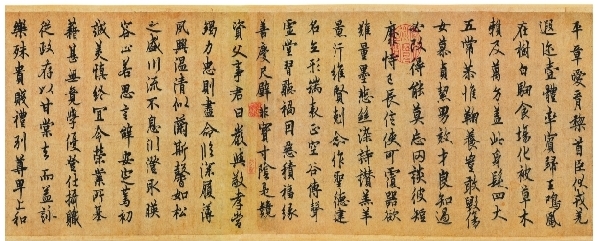 平章愛育黎首臣伏戎羌
遐邇壹體率賓歸王鳴鳳
在樹白駒食場化被草木
賴及萬方蓋此身髮四大
五常恭惟鞠養豈敢毀傷
女慕貞潔男效才良知過
必改得能莫忘罔談彼短
靡恃己長信使可覆器欲
難量墨悲絲染詩讚羔羊
景行維賢剋念作聖德建
名立形端表正空谷傳聲
虛堂習聽禍因惡積福緣
善慶尺璧非寶寸陰是競
資父事君曰嚴與敬孝當
竭力忠則盡命臨深履薄
夙興溫清似蘭斯馨如松
之盛川流不息淵澄取映
容止若思言辭安定篤初
誠美慎終宜令榮業所基
藉甚無竟學優登仕攝職
從政存以甘棠去而益詠
樂殊貴賤禮別尊卑上和